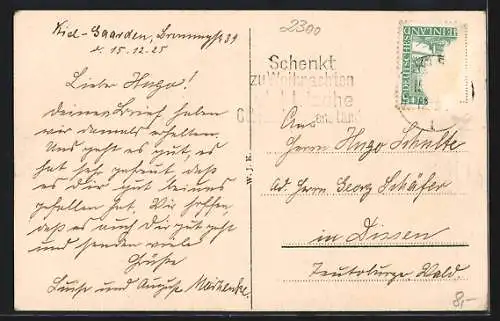 Kiel-Gaarden, Brommystr 39
d. 15.12.25
Lieber Hugo!
Deinen Brief haben
wir damals erhalten.
Uns geht es gut, es
hat sehr gefreut, daß
es dir gut bei uns
gefallen hat. Wir hoffen,
daß es auch dir gut geht
und senden viele
Grüße
Luise und August
2300
Schenkt
zu Weihnachten
W. J. K.
DEUTSCHES
RHEINLAND
An
Herrn Hugo Schulte
ad. Herrn Georg Schäfer
in Dissen
Teutoburger Wald.
8,-